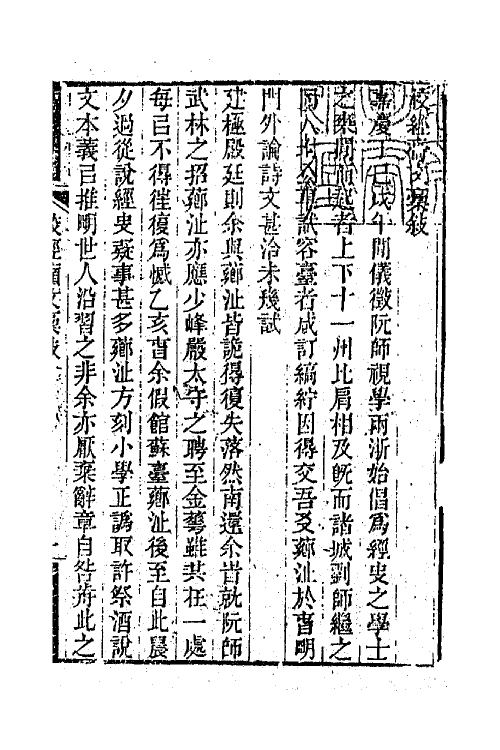 校經廎文稾敍
嘉慶丁巳戊午間儀徵阮師視學兩浙始倡爲經史之學士
之聞而起者上下十一州比肩相及旣而諸城劉師繼之
試容臺者咸訂縞紵因得交吾友薌沚於曹明
門外論詩文甚洽未幾試
建極殿廷則余與薌沚皆詭得復失落然南還余旹就阮師
武林之招薌沚亦應少峰嚴太守之聘至金華雖共在一處
每㠯不得徃復爲憾乙亥旹余假館蘇臺薌沚後至自此晨
夕過從說經史疑事甚多薌沚方刻小學正譌取許祭酒說
文本義㠯推明世人沿習之非余亦厭棄辭章自咎荒此之
校經廎文稾敍 一